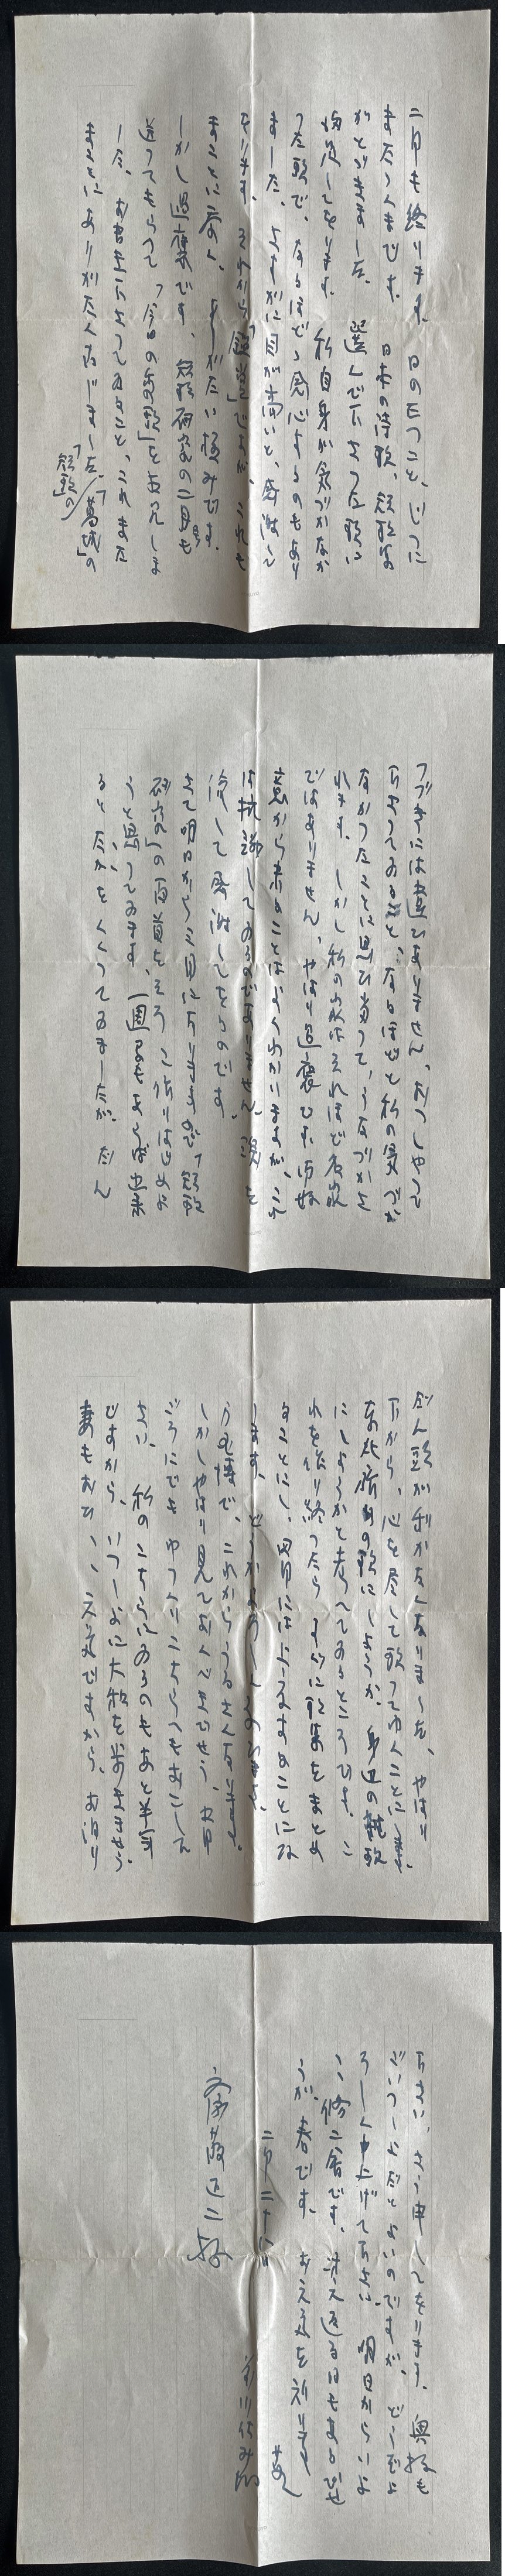 二月も終ります。日のたつこと、じつに
またたくまです。日本の詩歌、短歌集
がとどきました。選んで下さった歌に
満足してをります。私自身が気づかなか
つた歌で、なるほどと感心するのもあり
ました。さすがに目が高いと、感謝して
をります。それから「鑑賞」ですが、これも
まことに あ りがたい極みです。
しかし過褒です。短歌研究の二月号も
送つてもらつて「今日の秀歌」をよみしま
した。お書き下さつてゐること、これまた
まことにありがたく存じました。「葛城」の
「短歌の
フブキには違ひありません。おつしやつて
下さつてゐること、なるほどと私の気づか
なかつたことに思ひ当つて、うなづかさ
れます。しかし私の歌はそれほど
ではありません。やはり過褒です。御好
意から来ることはよくわかりますが、これ
は抗議してゐるのでありません。涙を
流して感謝してをるのです。
さて明日から三月になりますので「短歌
研究」の百首をそろそろ作りはじめよ
うと思つてゐます。一週間もあれば出来
ると、たかをくくつてゐましたが、だん
だん頭が利かなくなりました。やはり
下から、心を尽して歌つてゆくことにします。
東北旅中の歌にしようか、身辺の雑歌
にしようかと考へてゐるところです。こ
れを作り終つたらすぐに歌集をまとめ
ることにし、四月には
します。どうかよろしくねがひます。
万博で、これからうるさくなります。
しかしやはり見ておくべきでせう。五月
ごろにでもゆつくりこちらへもおこし下
さい。私のこちらにゐるのもあと半年
ですから、いつしよに大和を歩きませう。
妻もおひおひ元気ですから、お泊り
下さい。さう申してをります。奥様も
ごいつしよだとよいのですが。どうぞよ
ろしく申上げて下さい。明日からいよ
いよ修二会です。冴え返る日もあるでせ
うが、春です。お元気を祈ります。
二月二十八日
前川佐美雄
斎藤正二様